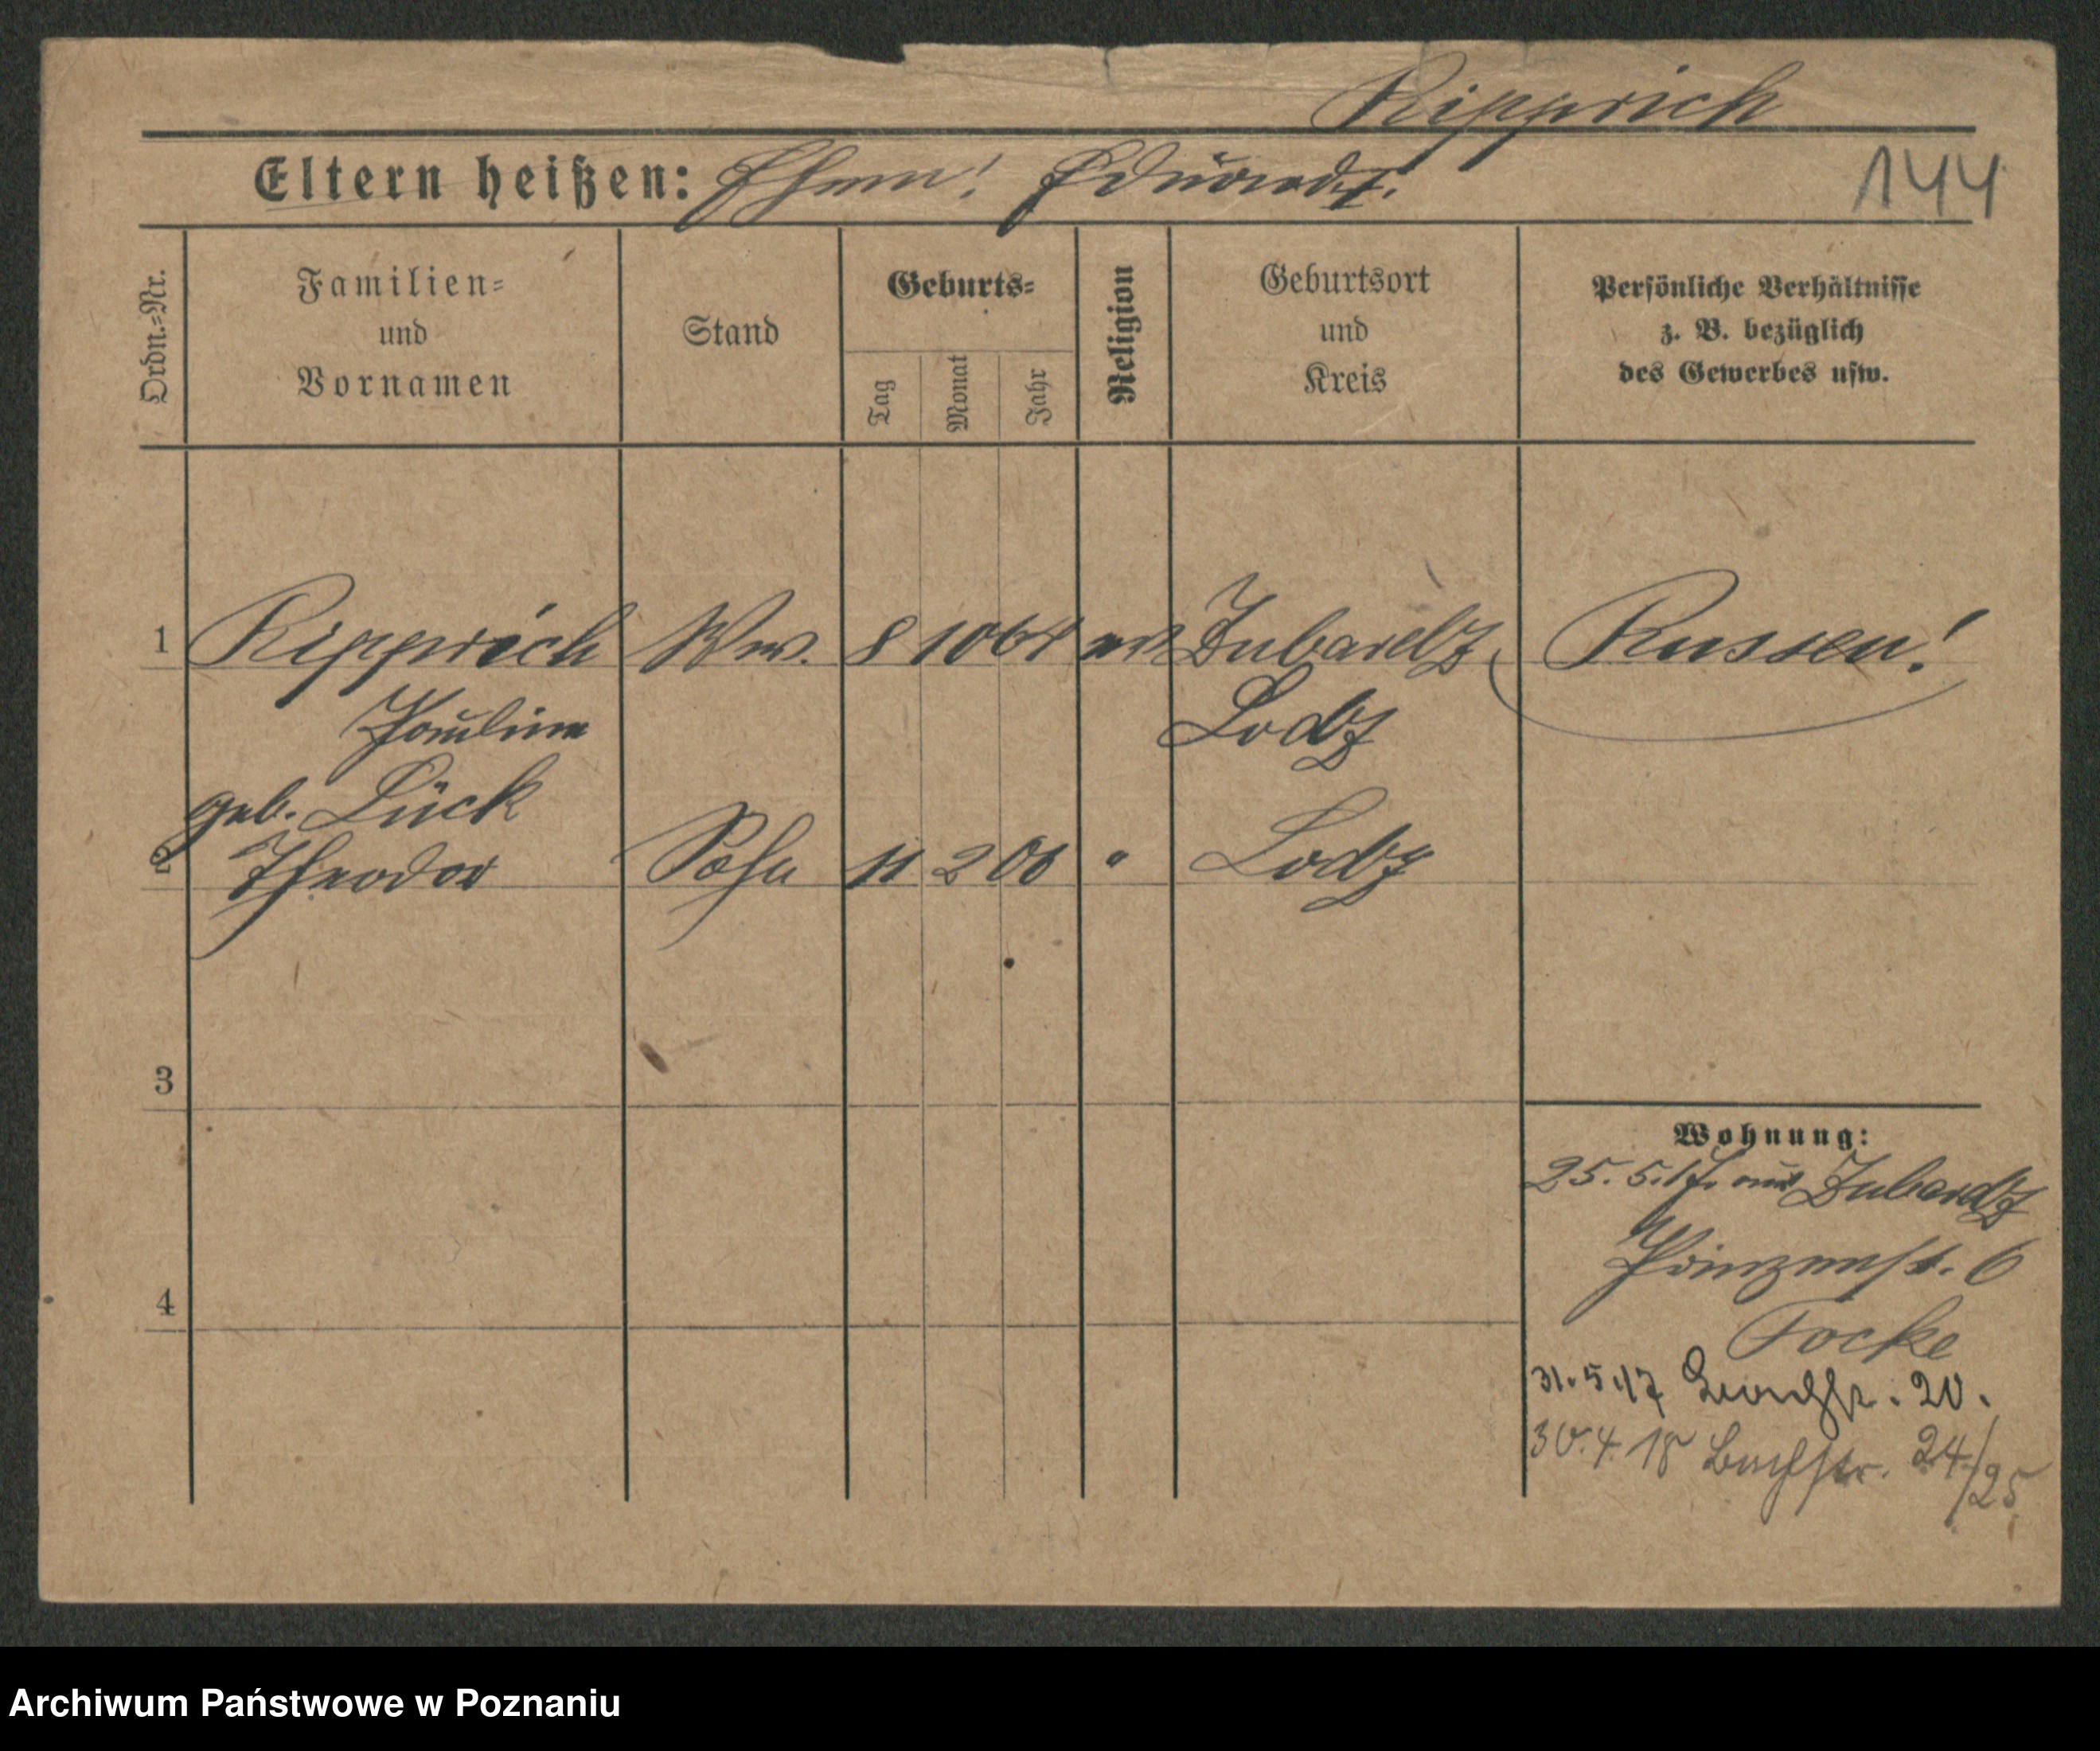 Ripprich
Eltern heißen: Ehem: Eduard †.
144
Ordn.-Nr.
Familien-
und
Vornamen
Stand
Geburts-
Tag
Monat
Jahr
Religion
Geburtsort
und
Kreis
Persönliche Verhältnisse
z. B. bezüglich
des Gewerbes usw.
1 Ripprich Ww. 8 10 64 Zubardz Russen!
Pauline Lodz
geb. Lück
2 Theodor Sohn 11 2 06 " Lodz
3
4
Wohnung:
25. 5. 17. aus Zubardz
Prinzenst. 6
Focke
31. 5. 17 20.
30. 4. 18 Buchstr. 24/25
Archiwum Państwowe w Poznaniu